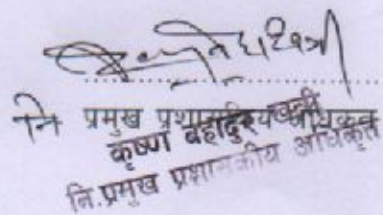 नि प्रमुख प्रशासकीय अधिकृत
कृष्ण बहादुर खत्री
नि.प्रमुख प्रशासकीय अधिकृत